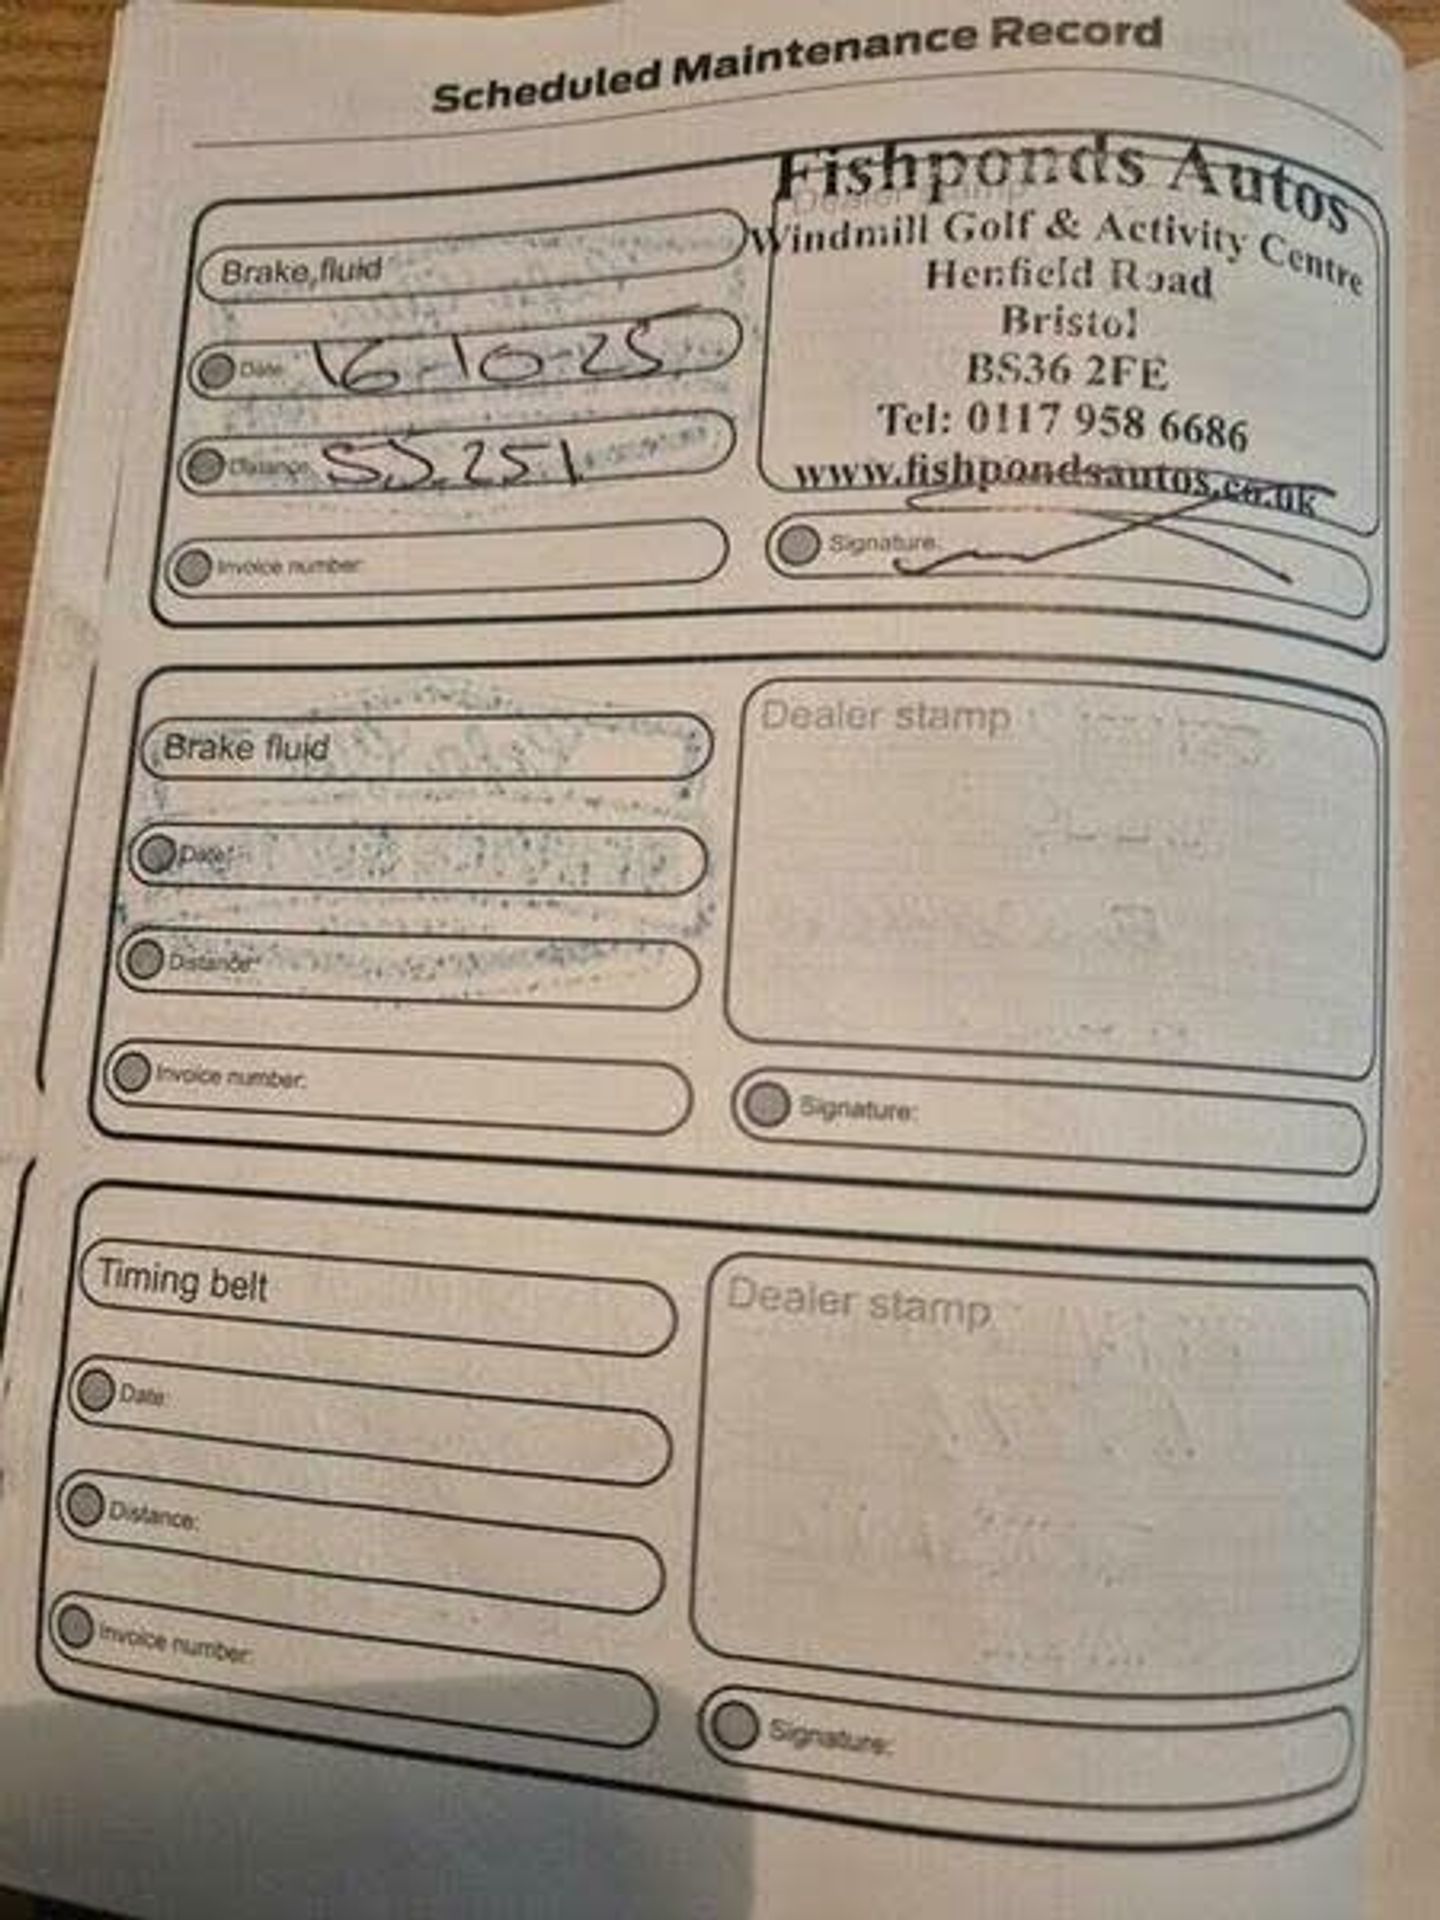 Scheduled Maintenance Record
Brake fluid
Date: 16-10-25
Distance: 55.251
Invoice number:
Fishponds Autos
Dealer stamp
Windmill Golf & Activity Centre
Henfield Road
Bristol
BS36 2FE
Tel: 0117 958 6686
www.fishpondsautos.co.uk
Signature:
Brake fluid
Date:
Distance:
Invoice number:
Dealer stamp
Signature:
Timing belt
Date:
Distance:
Invoice number:
Dealer stamp
Signature: